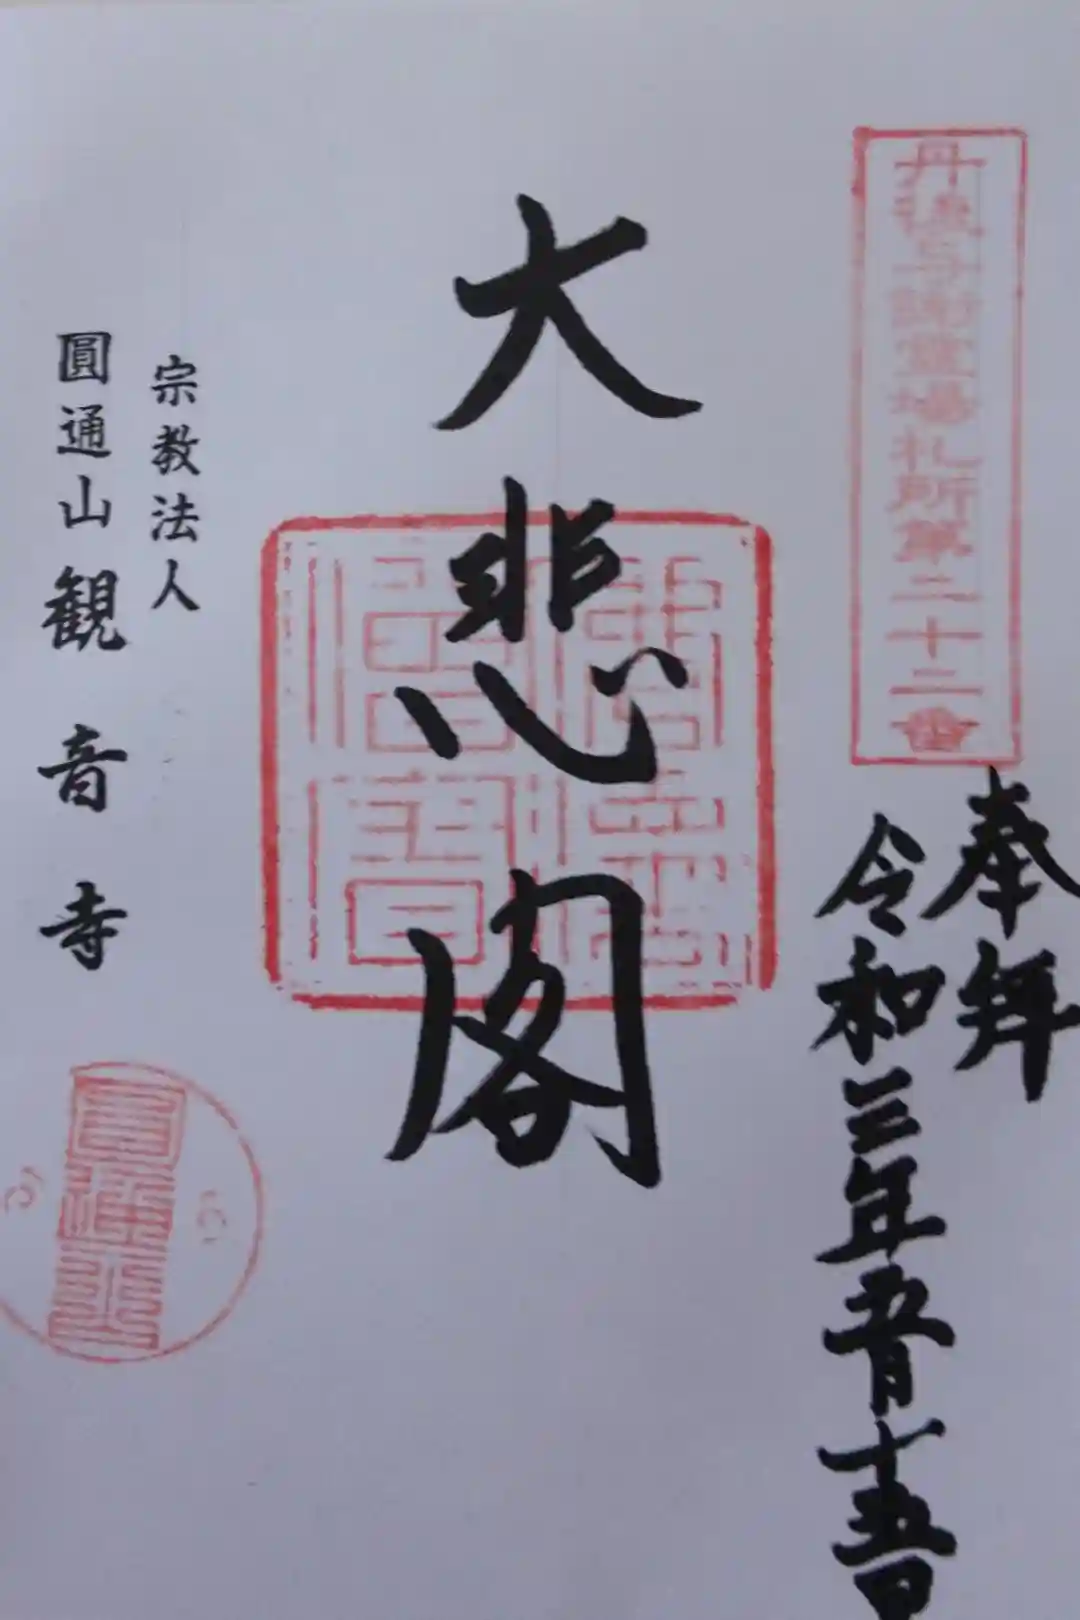 丹後与謝霊場札所第二十二番
奉拝
令和三年五月十五日
大悲閣
宗教法人
圓通山観音寺
圓通山